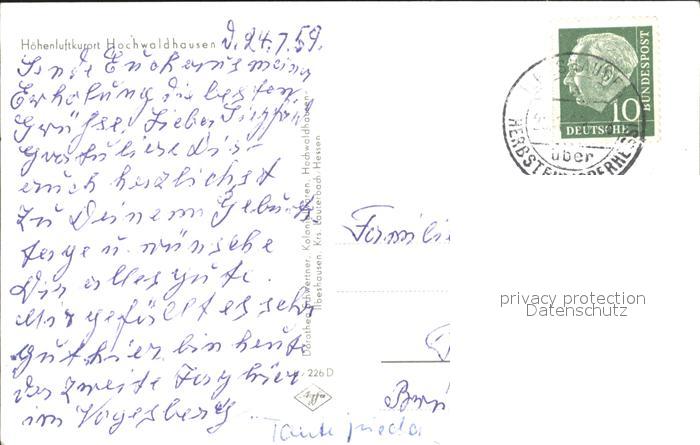 Höhenluftkurort Hochwaldhausen d. 24.7.59.
Sende Euch aus meiner
Erholung die besten
Grüsse. Lieber
Gratuliere Dir
auch herzlichst
zu Deinem Geburts
tage u. wünsche
Dir alles gute.
Mir gefällt es sehr
gut hier bin heute
der zweite Tag hier
im Vogelsberg
Tante Frieda
Dorothea Schwertner, Kolonialwaren, Hochwaldhausen-
Ilbeshausen, Krs. Lauterbach/Hessen
226 D
Familie
10
BUNDESPOST
DEUTSCHE
über
HERBSTEIN (OBERHESS
privacy protection
Datenschutz